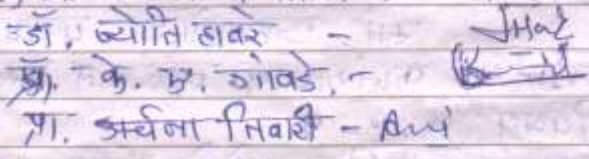 डॉ. ज्योति हावरे -
प्रा. के. एम. गोवडे. -
प्रा. अर्चना तिवारी -